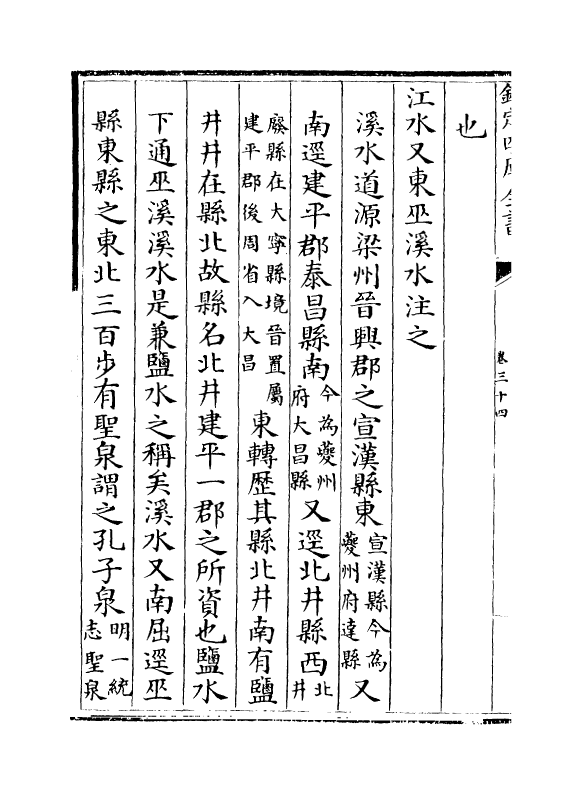 欽定四庫全書
卷三十四
也
江水又東巫溪水注之
溪水道源梁州晉興郡之宣漢縣東宣漢縣今為夔州府達縣又
南逕建平郡泰昌縣南今為夔州府大昌縣又逕北井縣西北井
廢縣在大寧縣境晉置屬建平郡後周省入大昌東轉歷其縣北井南有鹽
井井在縣北故縣名北井建平一郡之所資也鹽水
下通巫溪溪水是兼鹽水之稱矣溪水又南屈逕巫
縣東縣之東北三百步有聖泉謂之孔子泉明一統志聖泉